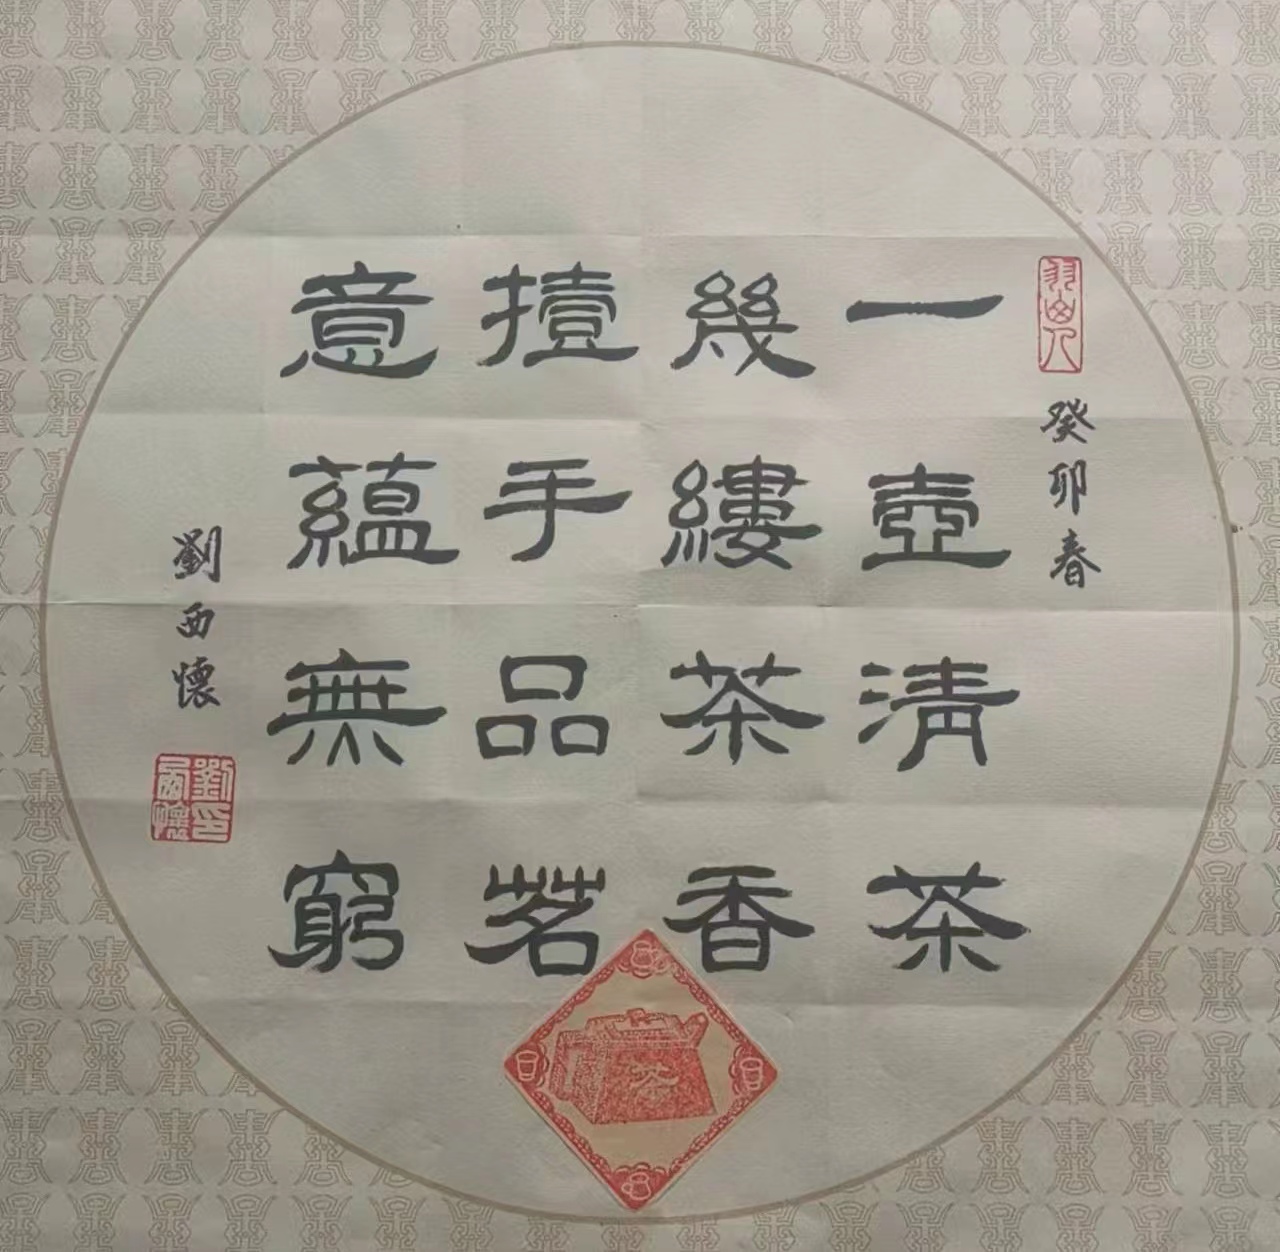 癸卯春
一壺清茶
幾縷茶香
擡手品茗
意蘊無窮
劉西懷
劉印西懷
茶